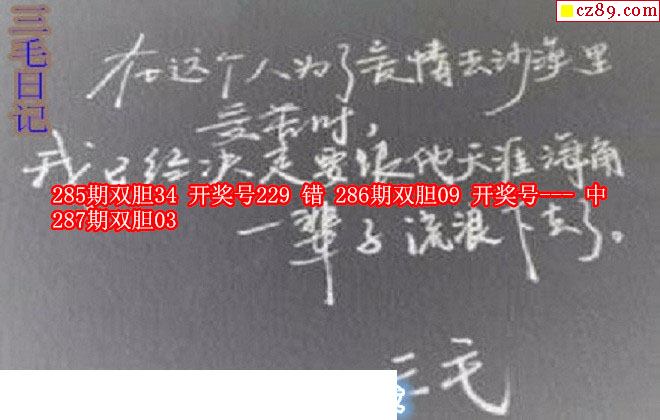 cz89.com
三毛日记
在这个人为了爱情去沙漠里
受苦时，
我已经决定要跟他天涯海角
285期双胆34 开奖号229 错 286期双胆09 开奖号--- 中
287期双胆03
一辈子流浪下去了。
三毛